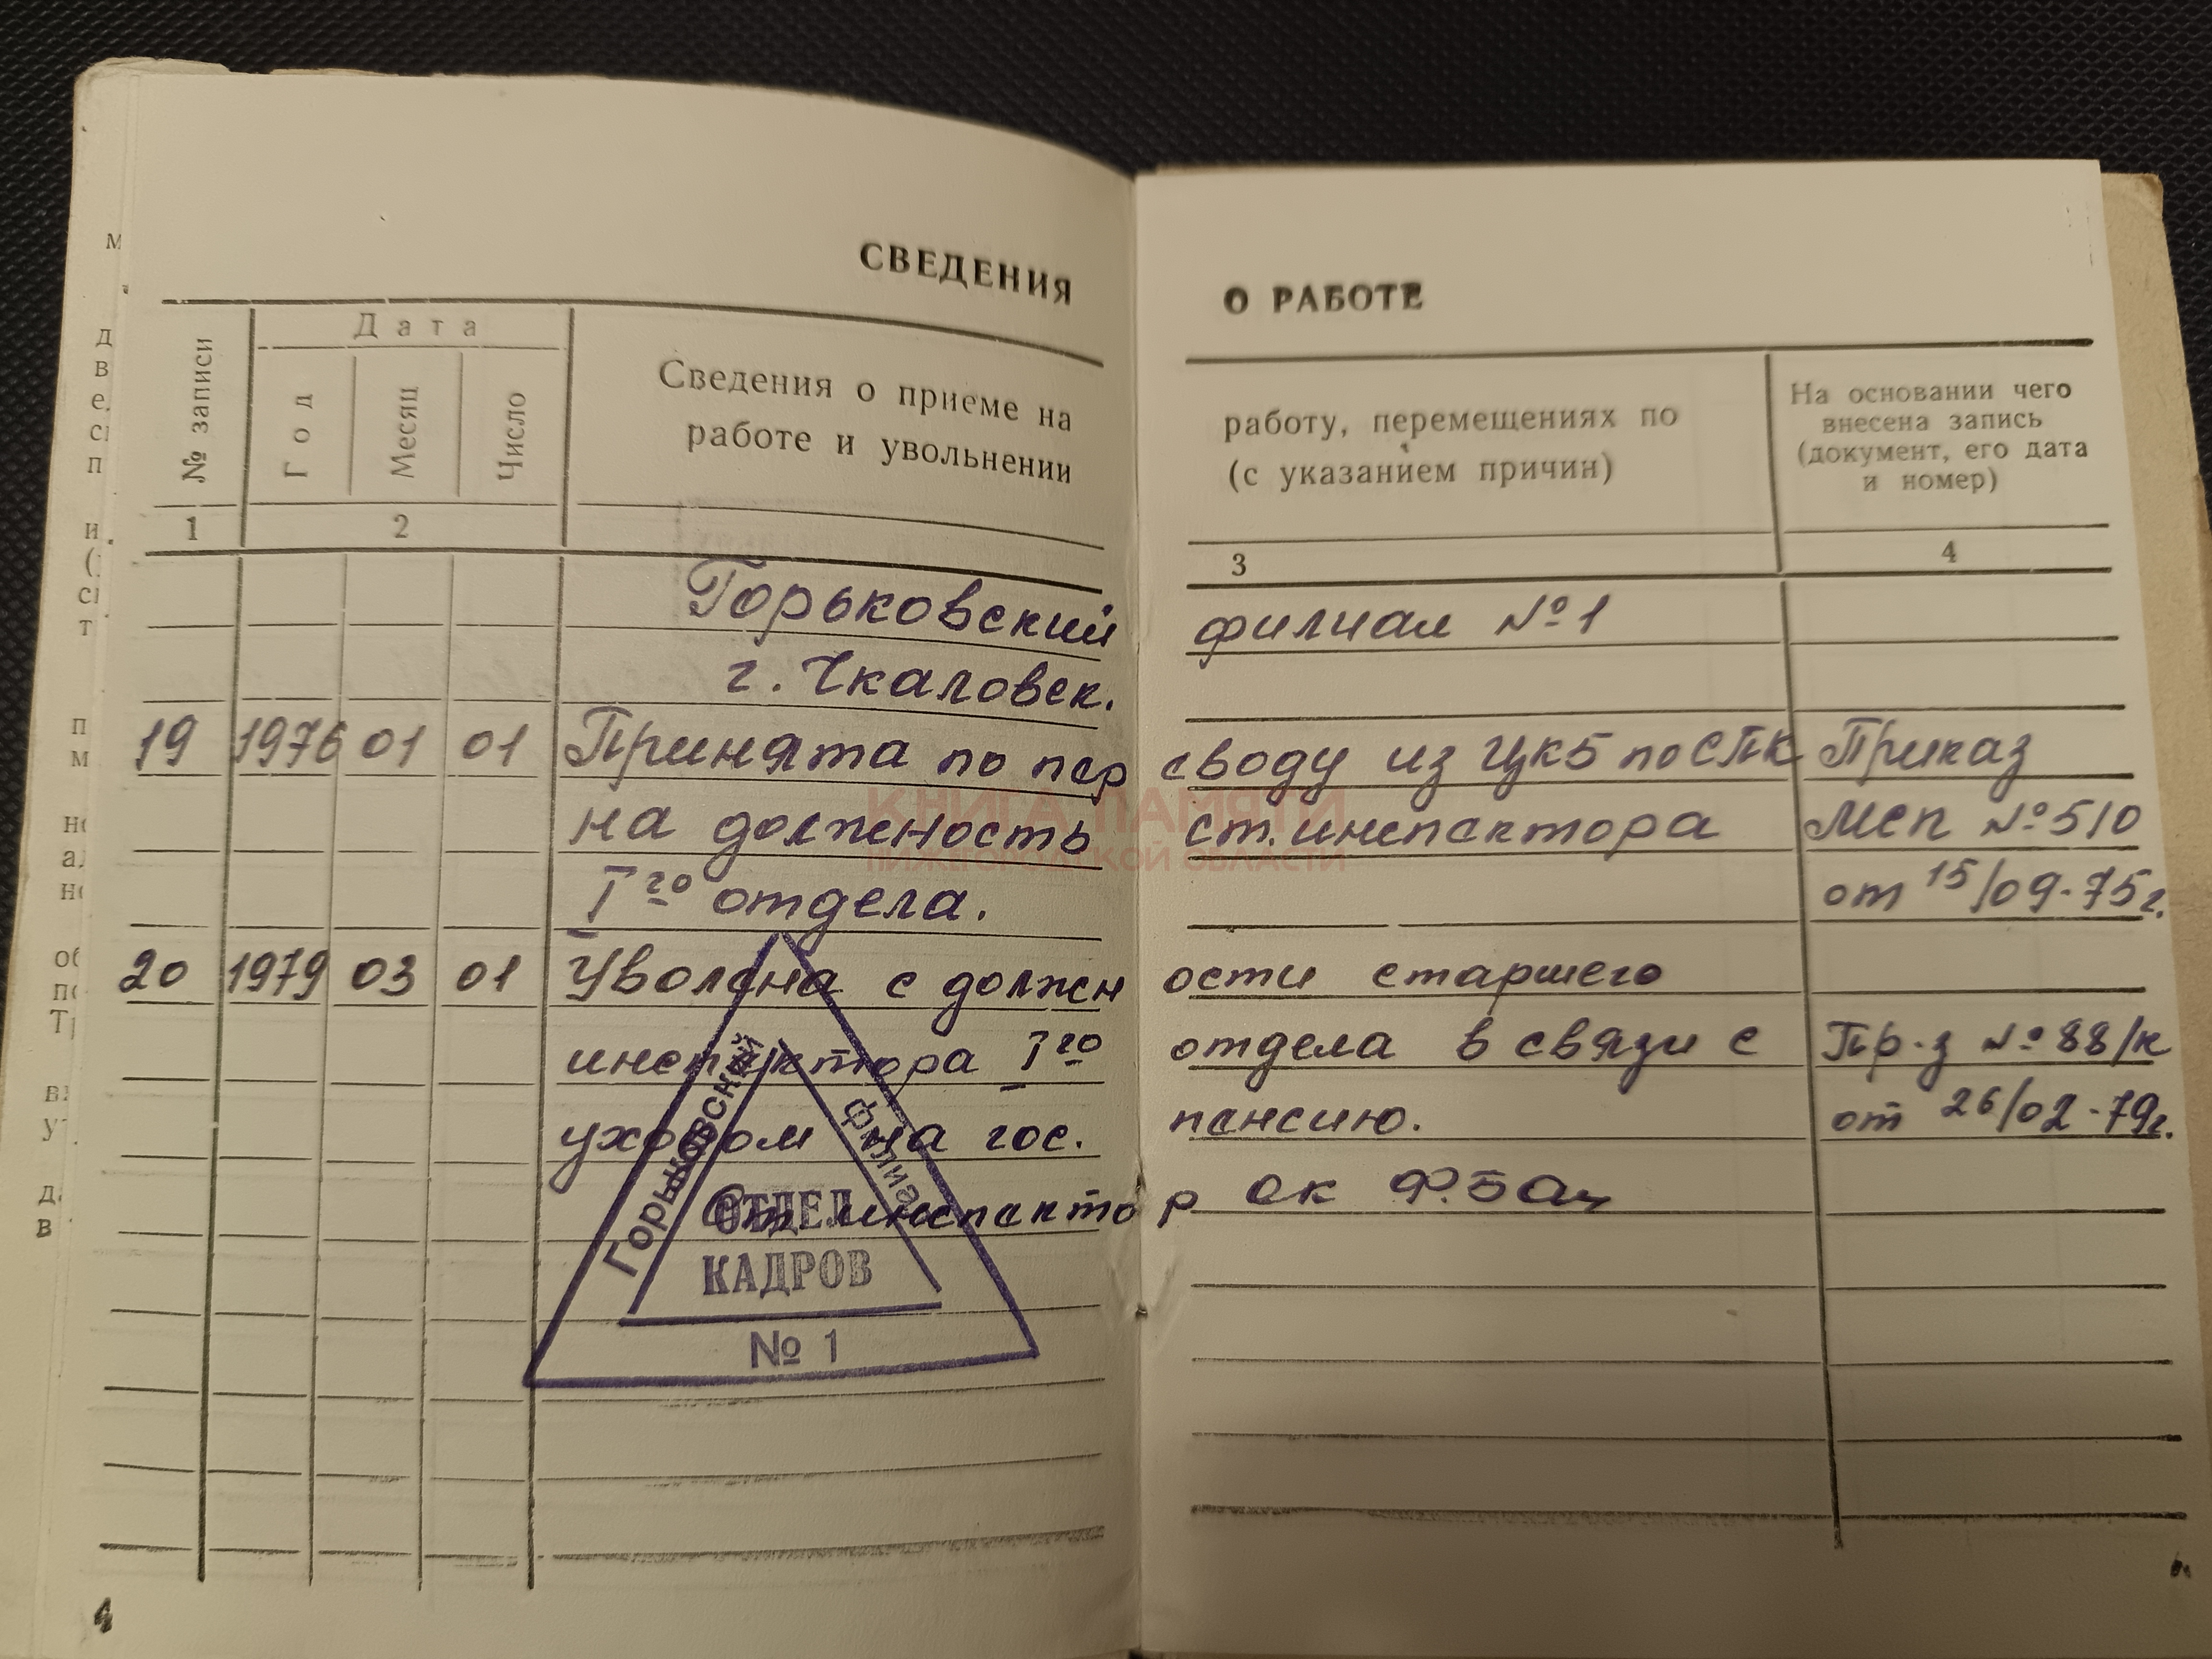 СВЕДЕНИЯ О РАБОТЕ
№ записи
Дата
Год
Месяц
Число
Сведения о приеме на работу, перемещениях по
работе и увольнении (с указанием причин)
На основании чего
внесена запись
(документ, его дата
и номер)
1 2 3 4
Горьковский филиал № 1
г. Чкаловск.
19 1976 01 01 Принята по переводу из ЦКБ по СПК Приказ
на должность ст. инспектора МСП № 510
I го отдела. от 15/09-75г.
20 1979 03 01 Уволена с должности старшего
инспектора I го отдела в связи с Пр-з № 88/к
уходом на гос. пенсию. от 26/02-79г.
Ст инспектор ОК
Горьковский филиал
ОТДЕЛ
КАДРОВ
№ 1
КНИГА ПАМЯТИ
НИЖЕГОРОДСКОЙ ОБЛАСТИ
4